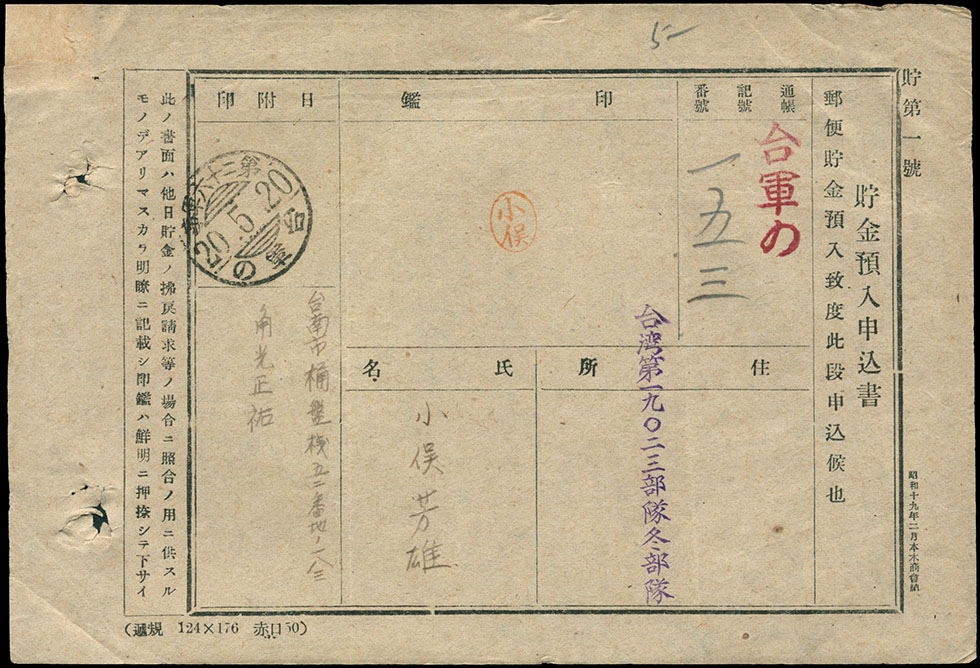 5-
貯第一號
貯金預入申込書
郵便貯金預入致度此段申込候也
通帳
記號
番號
台軍の
一五三
印鑑
小俣
日附印
20.5.20
台軍の
住所
台湾第一九〇二三部隊冬部隊
氏名
小俣芳雄
台南市桶盤桟五二番地ノ一
角光正祐
此ノ書面ハ他日貯金ノ拂戻請求等ノ場合ニ照合ノ用ニ供スル
モノデアリマスカラ明瞭ニ記載シ印鑑ハ鮮明ニ押捺シテ下サイ
昭和十九年二月本木商會納
(遞規 124×176 赤日50)